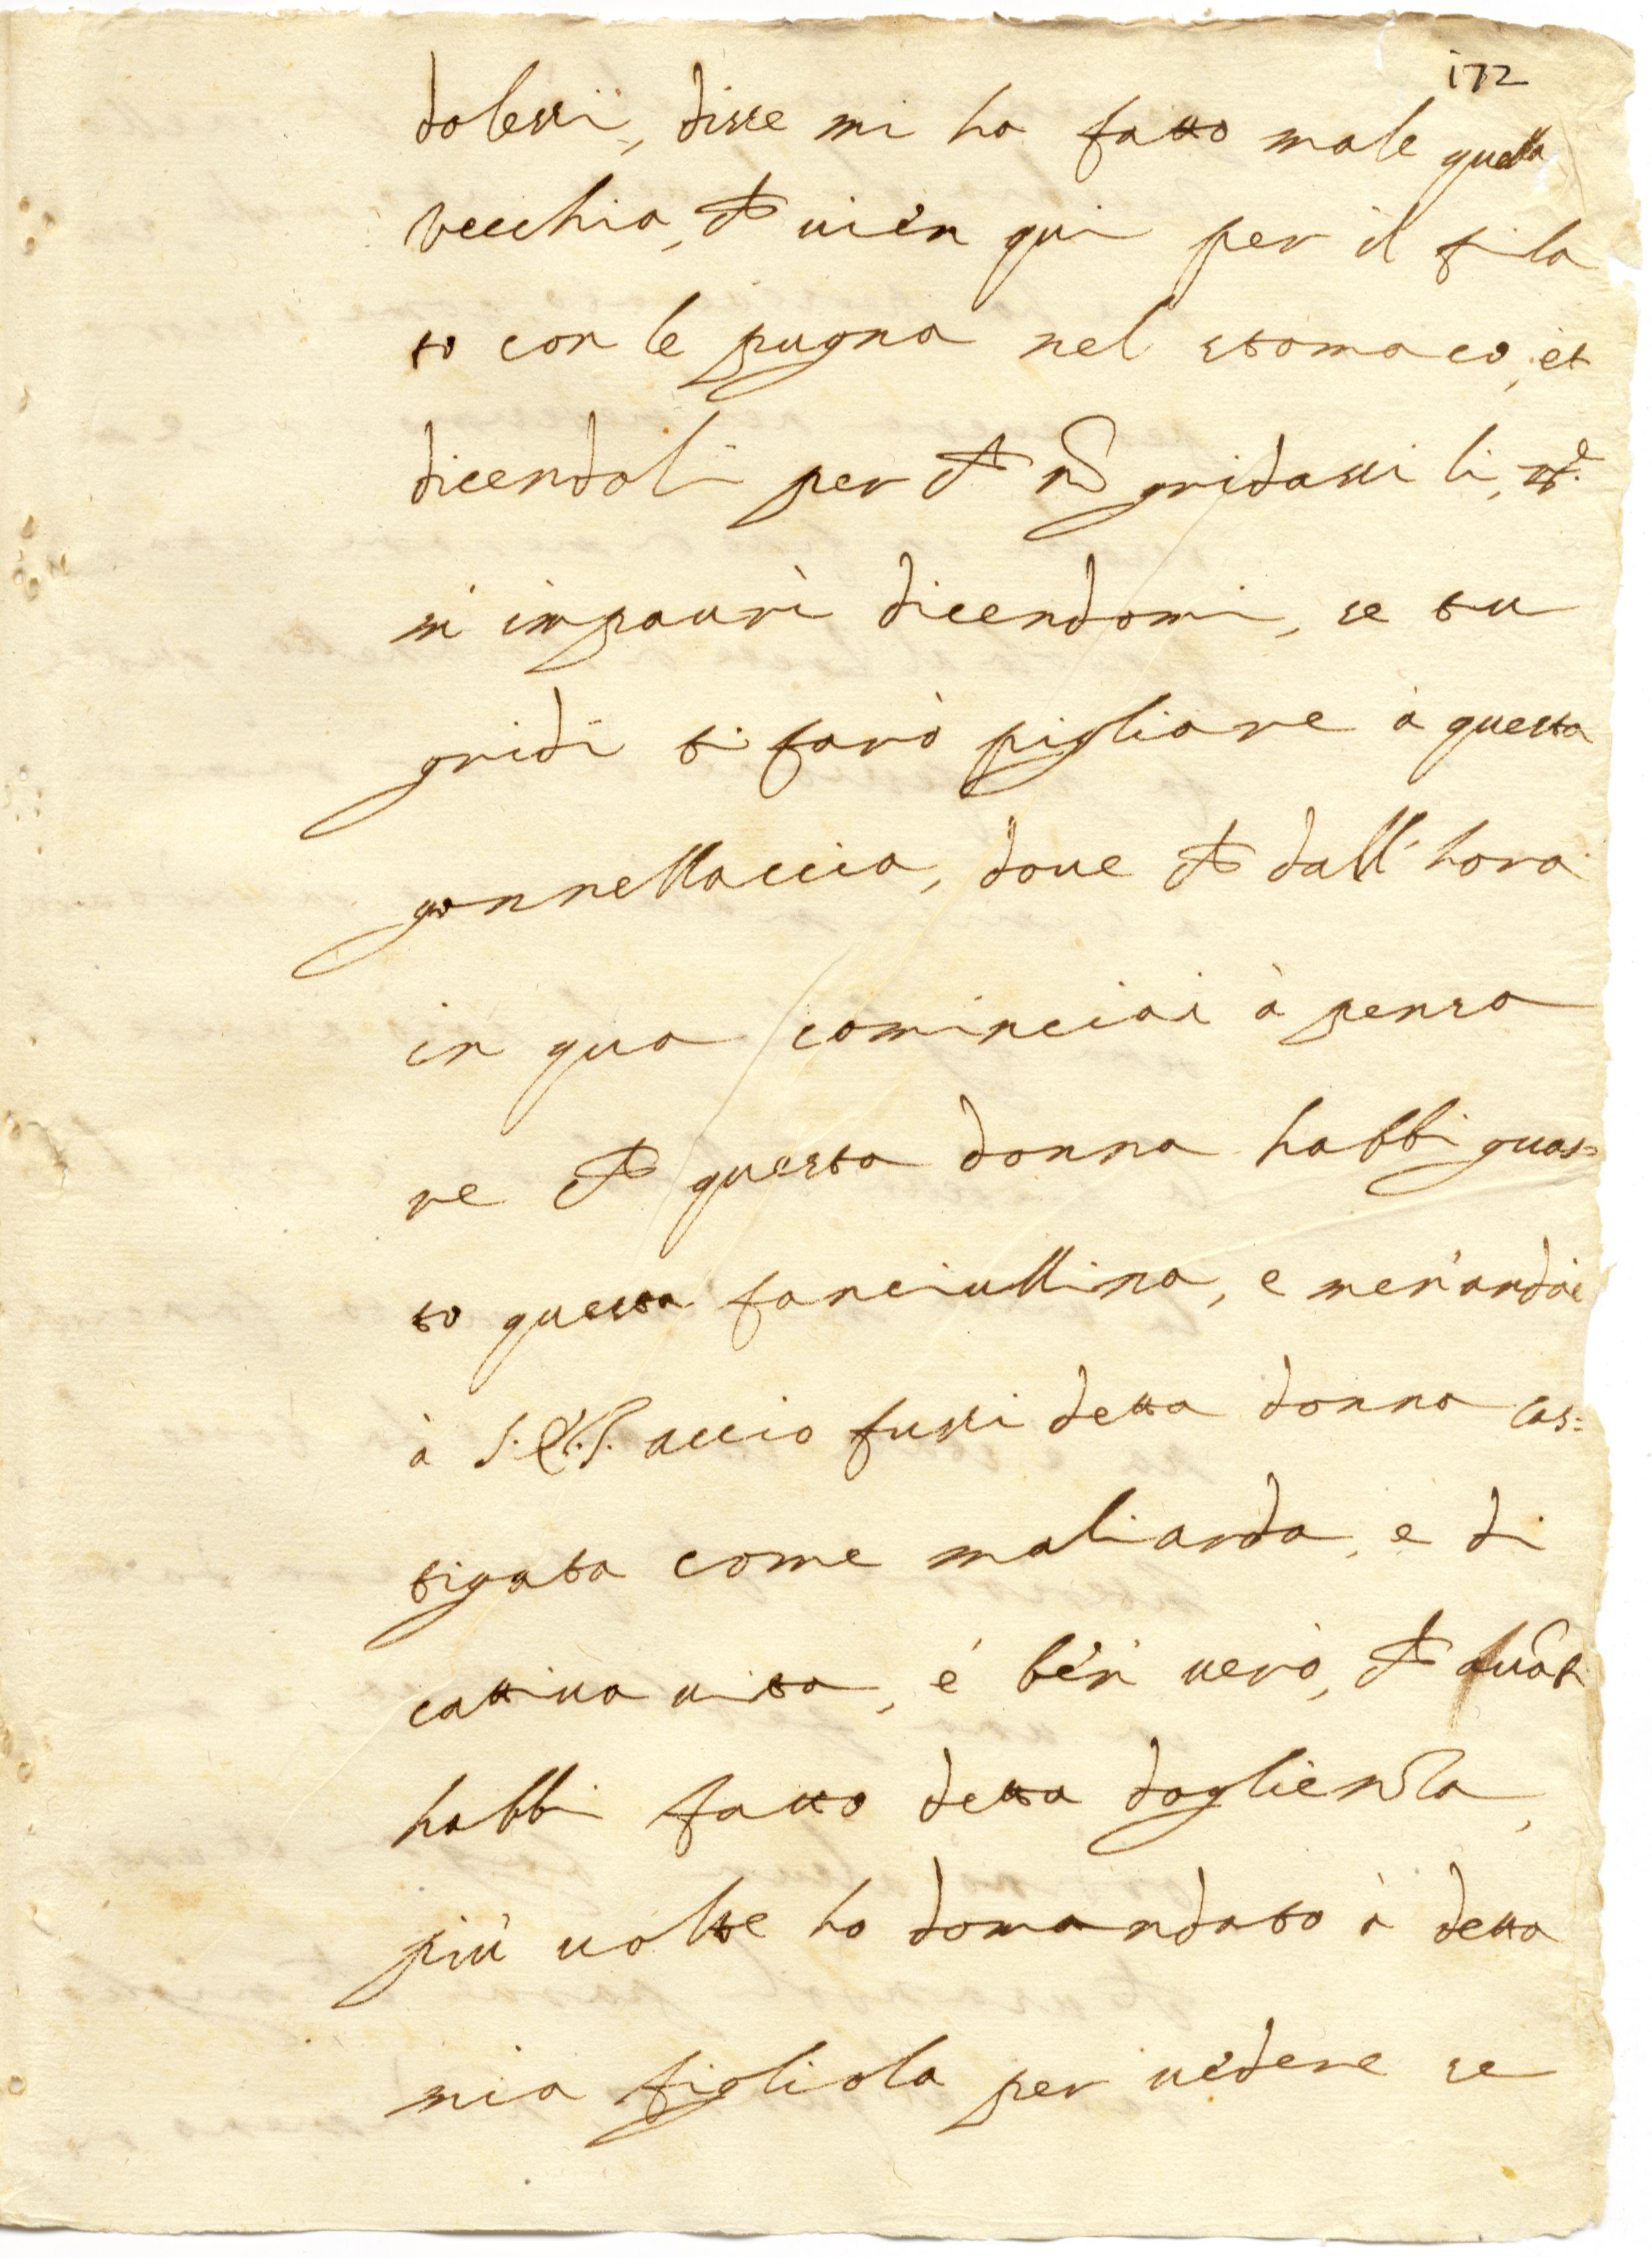 172
dolessi, disse mi ha fatto male quella
vecchia, che vien qui per il fila
to con le pugna nel stomaco, et
dicendoli per che nõ gridassi li,
mi impaurì dicendomi, se tu
gridi ti farò pigliare à questa
gonnellaccia, doue che dall'hora
in qua cominciai à pensa
re che questa donna habbi guas=
to questa fanciullina, e men'andai
à S. E. S. accio fussi detta donna cas=
tigata come maliarda, e di
cattiua uita, é bén uerò, che auãti
habbi fatto detta doglienza,
più uolte ho domandato à detta
mia figliola per uedere se